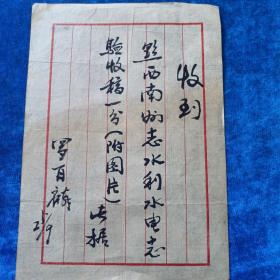 收到
黔西南州志水利水电志
验收稿一分（附图片）此据
罗百麟
2/9